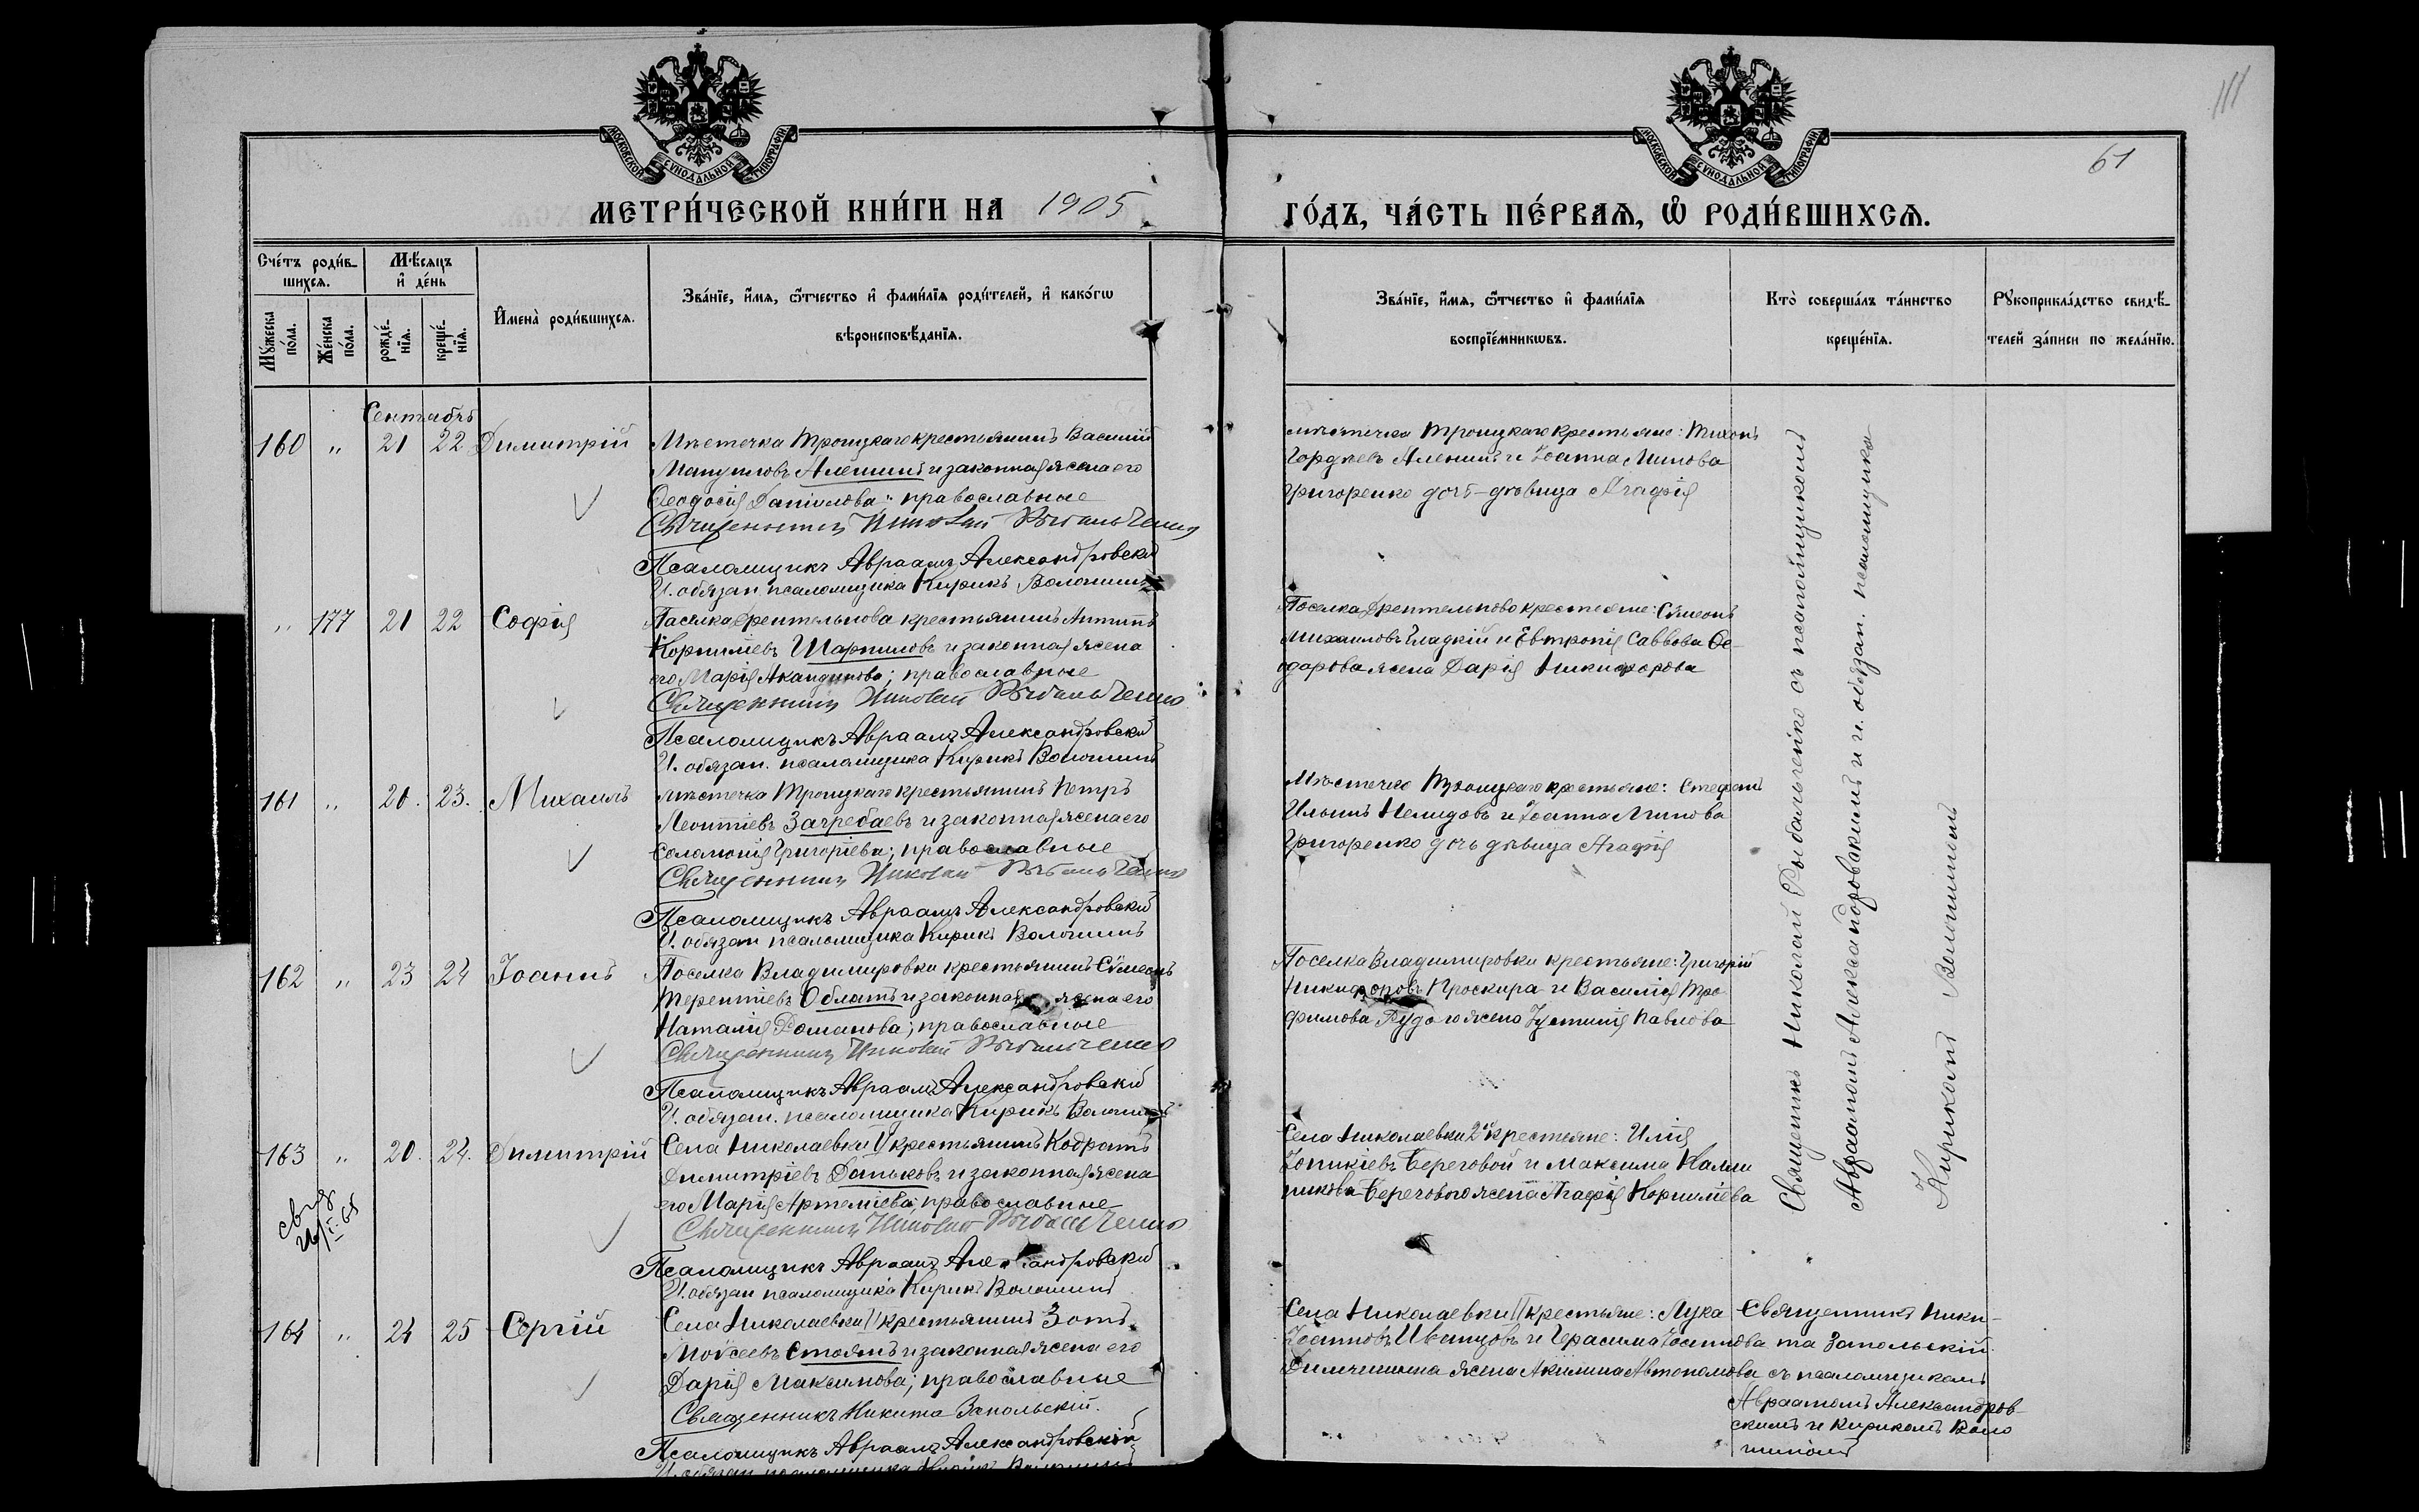 111
61
МОСКОВСКОЙ СѴНОДАЛЬНОЙ ТИПОГРАФІИ
МОСКОВСКОЙ СѴНОДАЛЬНОЙ ТИПОГРАФІИ
МЕТРИ́ЧЕСКОЙ КНИ́ГИ НА 1905
ГО́ДЪ, ЧА́СТЬ ПЕ́РВАѦ, Ѡ҆ РОДИ́ВШИХСѦ.
Сче́тъ роди́в-
шихсѧ.
Мꙋ́жеска по́ла.
Же́нска по́ла.
Мѣ́сѧцъ
и҆ де́нь
рожде́-
нїѧ.
креще́-
нїѧ.
И҆мена̀ роди́вшихсѧ.
Зва́нїе, и҆́мѧ, ѻ҆́тчество и҆ фами́лїѧ роди́телей, и҆ како́гѡ
вѣроисповѣ́данїѧ.
Зва́нїе, и҆́мѧ, ѻ҆́тчество и҆ фами́лїѧ
воспрїе́мникѡвъ.
Кто̀ соверша́лъ та́инство
креще́нїѧ.
Рꙋкоприкла́дство свидѣ́-
телей за́писи по жела́нїю.
Сентябрь
160 " 21 22 Димитрій
Мѣстечка Троицкаго крестьянинъ Василій
Мануиловъ Аленинъ и законная жена его
Ѳеодосія Даніилова; православные
Священникъ Николай Рыбальченко
Псаломщикъ Авраамъ Александровскій
И. обязан. псаломщика Кирикъ Волошинъ
мѣстечка Троицкаго крестьяне: Тихонъ
Гордѣевъ Аленинъ и Іоанна Минова
Григоренко дочь-дѣвица Агафія
" 177 21 22 Софія
Поселка Дрентельнова крестьянинъ Антипъ
Корниліевъ Шарпиловъ и законная жена
его Марія Акандинова; православные
Священникъ Николай Рыбальченко
Псаломщикъ Авраамъ Александровскій
И. обязан. псаломщика Кирикъ Волошинъ
Поселка Дрентельново крестьяне: Сѵмеонъ
Михаиловъ Гладкій и Евтропія Саввова Ѳе-
одорова жена Дарія Никифорова
161 " 20. 23. Михаилъ
мѣстечка Троицкаго крестьянинъ Петръ
Леонтіевъ Загребаевъ и законная жена его
Соломонія Григоріева; православные
Священникъ Николай Рыбальченко
Псаломщикъ Авраамъ Александровскій
И. обязан псаломщика Кирикъ Волошинъ
Мѣстечко Троицкаго крестьяне: Стефанъ
Ильинъ Нелидовъ и Іоанна Минова
Григоренко дочь дѣвица Агафія
162 " 23 24 Іоаннъ
Поселка Владимировки крестьянинъ Сѵмеонъ
Терентіевъ Облатъ и законная жена его
Наталія Романова; православные
Священникъ Николай Рыбальченко
Псаломщикъ Авраамъ Александровскій
И. обязан. псаломщика Кирикъ Волошинъ
Поселка Владимировки крестьяне: Григорій
Никифоровъ Проскира и Василія Тро-
фимова Рудого жена Іустинія Павлова
163 " 20. 24. Димитрій
Села Николаевки II крестьянинъ Кодратъ
Димитріевъ Даньковъ и законная жена
его Марія Артеміева; православные
Священникъ Николай Рыбальченко
Псаломщикъ Авраамъ Александровскій
И. обязан псаломщика Кирикъ Волошинъ
Села Николаевки 2й крестьяне: Илія
Іоникіевъ Береговой и Максима Калин-
никова Берегового жена Агафія Корниліева
164 " 24 25 Сергій
Села Николаевки II крестьянинъ Зотъ
Моѵсеевъ Стоянъ и законная жена его
Дарія Максимова; православные
Священникъ Никита Запольскій.
Псаломщикъ Авраамъ Александровскій
И. обязан псаломщика Кирикъ Волошинъ
Села Николаевки II крестьяне: Лука
Іоанновъ Иванцовъ и Герасима
жена Акилина Автономова
Священникъ Ники-
та Запольскій
съ псаломщикомъ
Авраамомъ Александров-
скимъ и Кирикомъ Воло-
шинымъ
Священникъ Николай Рыбальченко съ псаломщикомъ
Авраамомъ Александровскимъ и и. обязан. псаломщика
Кирикомъ Волошинымъ